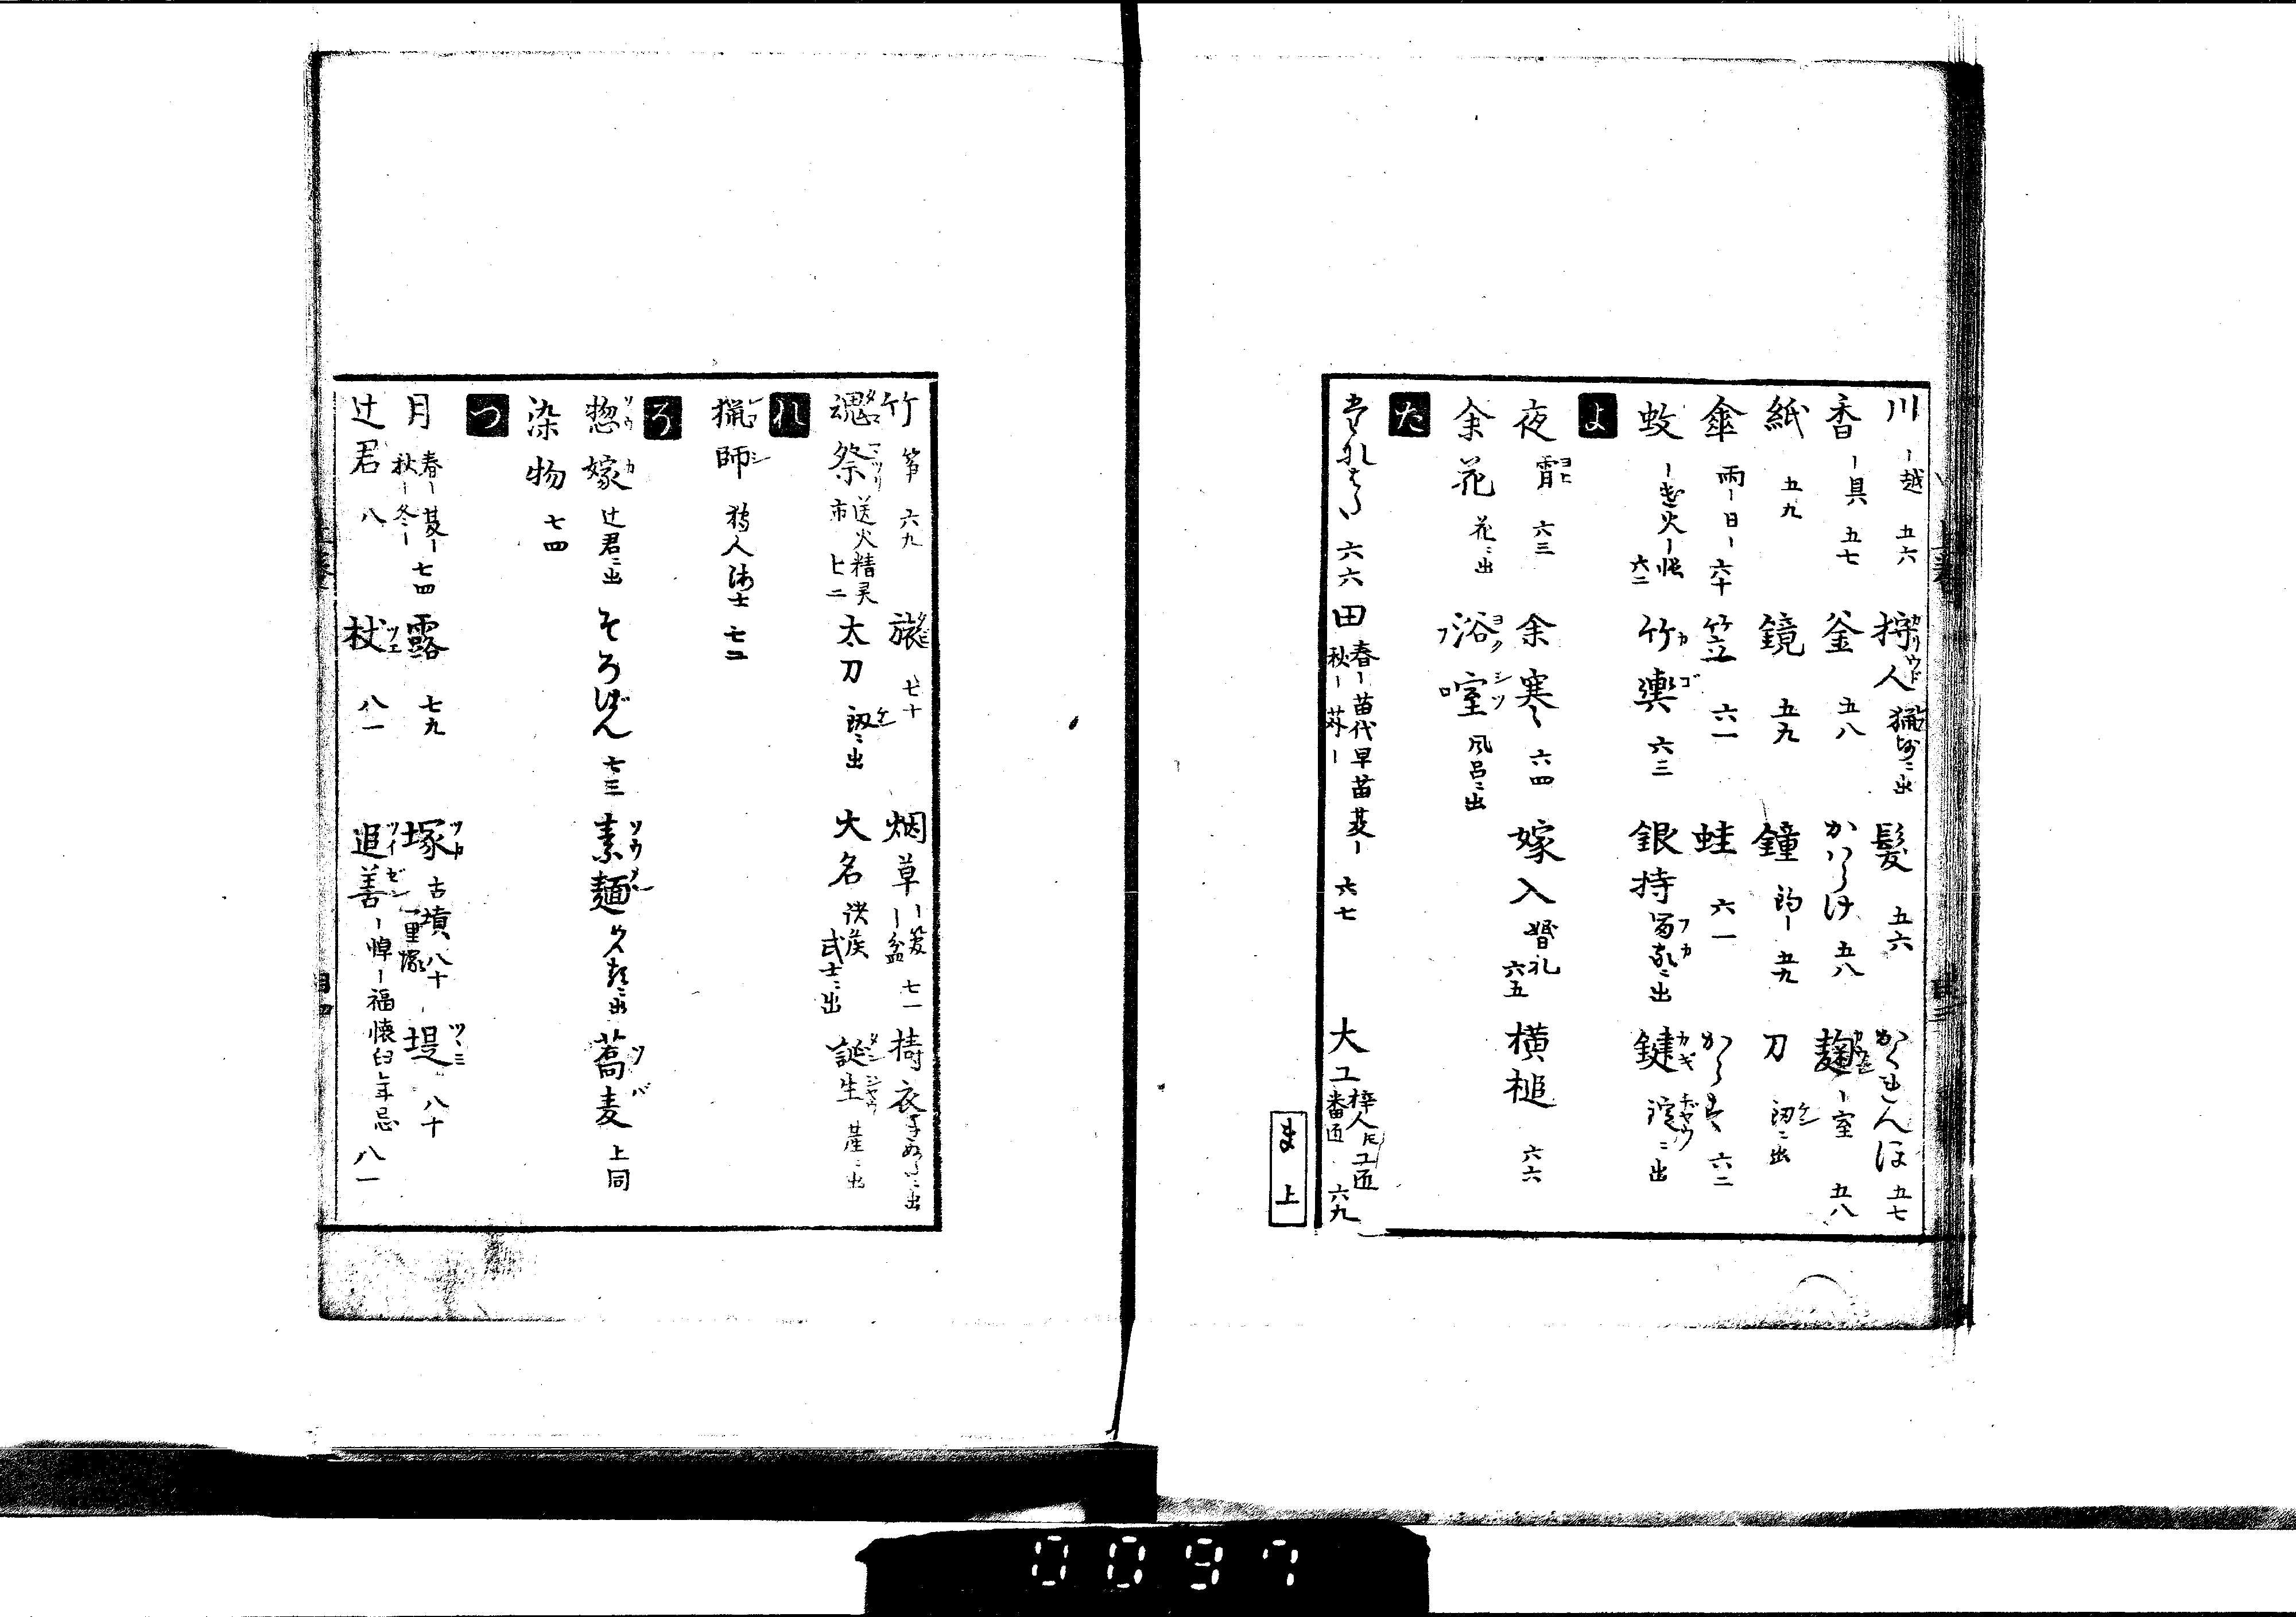 川 ー越 五六 狩人 猟師ニ出 髪 五六 かくれんほ 五七
香 ー具 五七 釜 五八 かはらけ 五八 麹 ー室 五八
紙 五九 鏡 五九 鐘 五九 刀 劔ニ出
傘 雨ー日ー 六十 笠 六一 蛙 六一 六二
蚊 ー遣火ー帳 六二 竹輿 六三 銀持 冨家ニ出 鍵 錠ニ出
よ
夜 霄 六三 余寒 六四 嫁入 婚礼 六五 横槌 六六
余花 花ニ出 浴室 風呂ニ出
た
六六 田 春ー苗代早苗夏ー秋ー苅ー 六七 大工 梓人 番匠 六九
ま上
竹 笋 六九 旅 七十 烟草 ー盆 七一 擣衣 きぬたニ出
魂祭 送火精灵市 七二 太刀 劔ニ出 大名 諸侯武士ニ出 誕生 産ニ出
れ
猟師 狩人 七二
そ
惣嫁 辻君ニ出 そろばん 七三 素麺 出 蕎麦 上同
染物 七四
つ
月 春ー夏ー秋ー冬ー 七四 露 七九 塚 古墳一里塚 八十 堤 八十
辻君 八 杖 八一 追善 ー悼ー福懐旧年忌 八一
0097